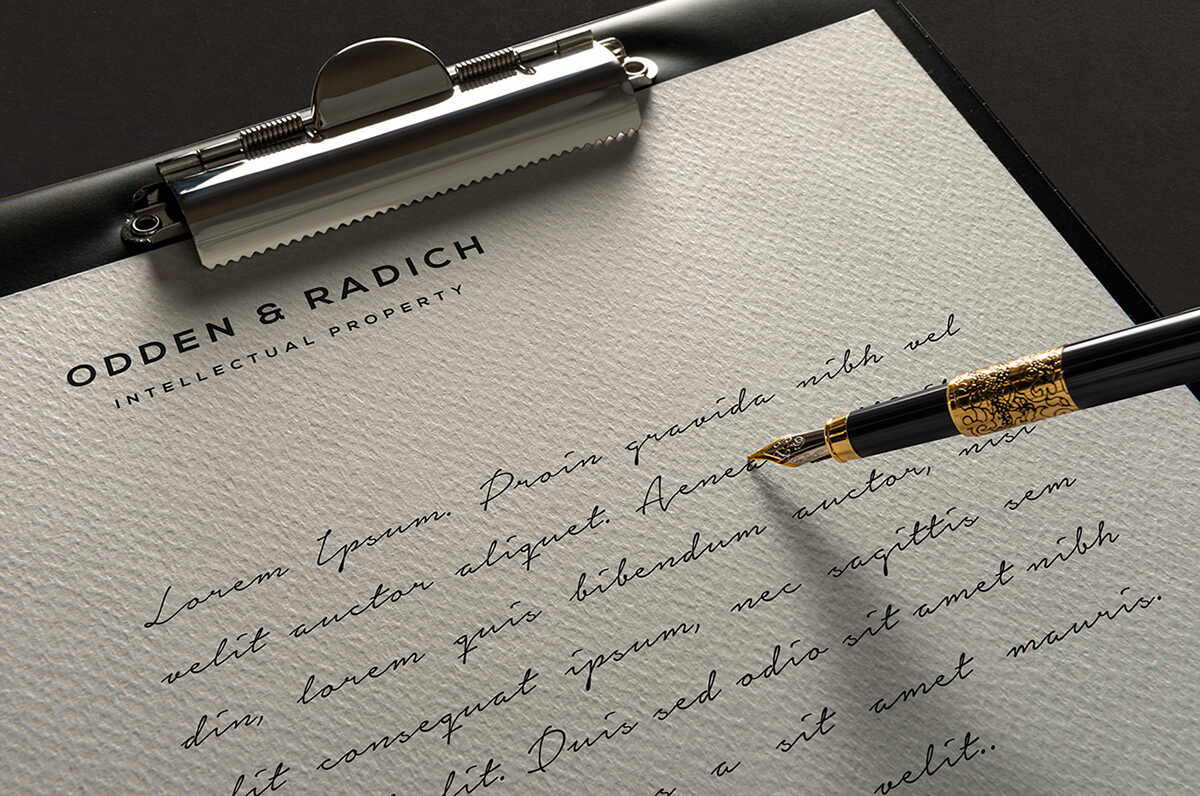 ODDEN & RADICH
INTELLECTUAL PROPERTY
Lorem Ipsum. Proin gravida nibh vel
velit auctor aliquet. Aenea
din, lorem quis bibendum auctor, nisi
elit consequat ipsum, nec sagittis sem
elit. Duis sed odio sit amet nibh
a sit amet mauris.
velit..